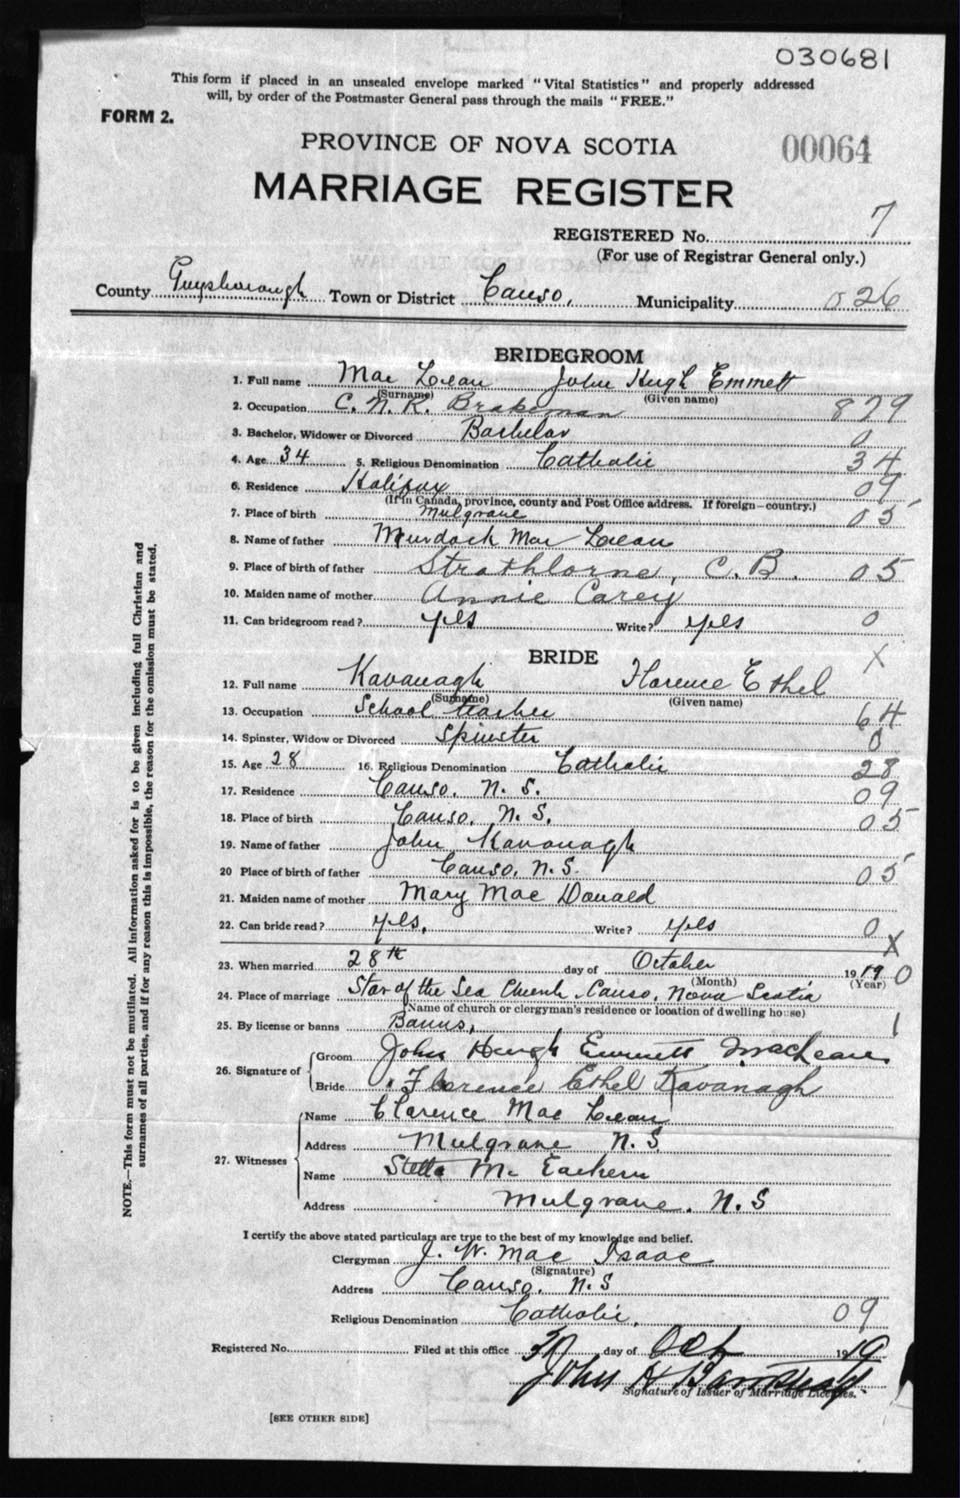 030681
This form if placed in an unsealed envelope marked "Vital Statistics" and properly addressed
will, by order of the Postmaster General pass through the mails "FREE."
FORM 2.
PROVINCE OF NOVA SCOTIA
00064
MARRIAGE REGISTER
REGISTERED No. 7
(For use of Registrar General only.)
County Guysborough Town or District Canso, Municipality 026
BRIDEGROOM
1. Full name Mac Lean John Hugh Emmett
(Surname) (Given name)
2. Occupation C. N. R. Brakeman 829
3. Bachelor, Widower or Divorced Bachelor 0
4. Age 34 5. Religious Denomination Catholic 34
6. Residence Halifax 09
(If in Canada, province, county and Post Office address. If foreign—country.)
7. Place of birth Mulgrave 05
8. Name of father Murdock Mac Lean
9. Place of birth of father Strathlorne, C. B. 05
10. Maiden name of mother Annie Carey
11. Can bridegroom read? yes Write? yes 0
BRIDE X
12. Full name Kavanagh Florence Ethel
(Surname) (Given name)
13. Occupation School teacher 64
14. Spinster, Widow or Divorced Spinster 0
15. Age 28 16. Religious Denomination Catholic 28
17. Residence Canso, N. S. 09
18. Place of birth Canso, N. S. 05
19. Name of father John Kavanagh
20 Place of birth of father Canso, N. S. 05
21. Maiden name of mother Mary Mac Donald
22. Can bride read? yes, Write? yes 0
X
23. When married 28th day of October 1919 0
(Month) (Year)
24. Place of marriage Star of the Sea Church, Canso, Nova Scotia
(Name of church or clergyman's residence or location of dwelling house)
25. By license or banns Banns, 1
26. Signature of Groom John Hugh Emmett MacLean
Bride Florence Ethel Kavanagh
27. Witnesses Name Clarence Mac Lean
Address Mulgrave N. S
Name Stella Mc Eachern
Address Mulgrave. N. S
I certify the above stated particulars are true to the best of my knowledge and belief.
Clergyman J. W. Mac Isaac
(Signature)
Address Canso. N. S
Religious Denomination Catholic, 09
Registered No. Filed at this office 30 day of Oct 1919
John H
Signature of Issuer of Marriage Licenses.
[SEE OTHER SIDE]
NOTE.—This form must not be mutilated. All information asked for is to be given including full Christian and
surnames of all parties, and if for any reason this is impossible, the reason for the omission must be stated.